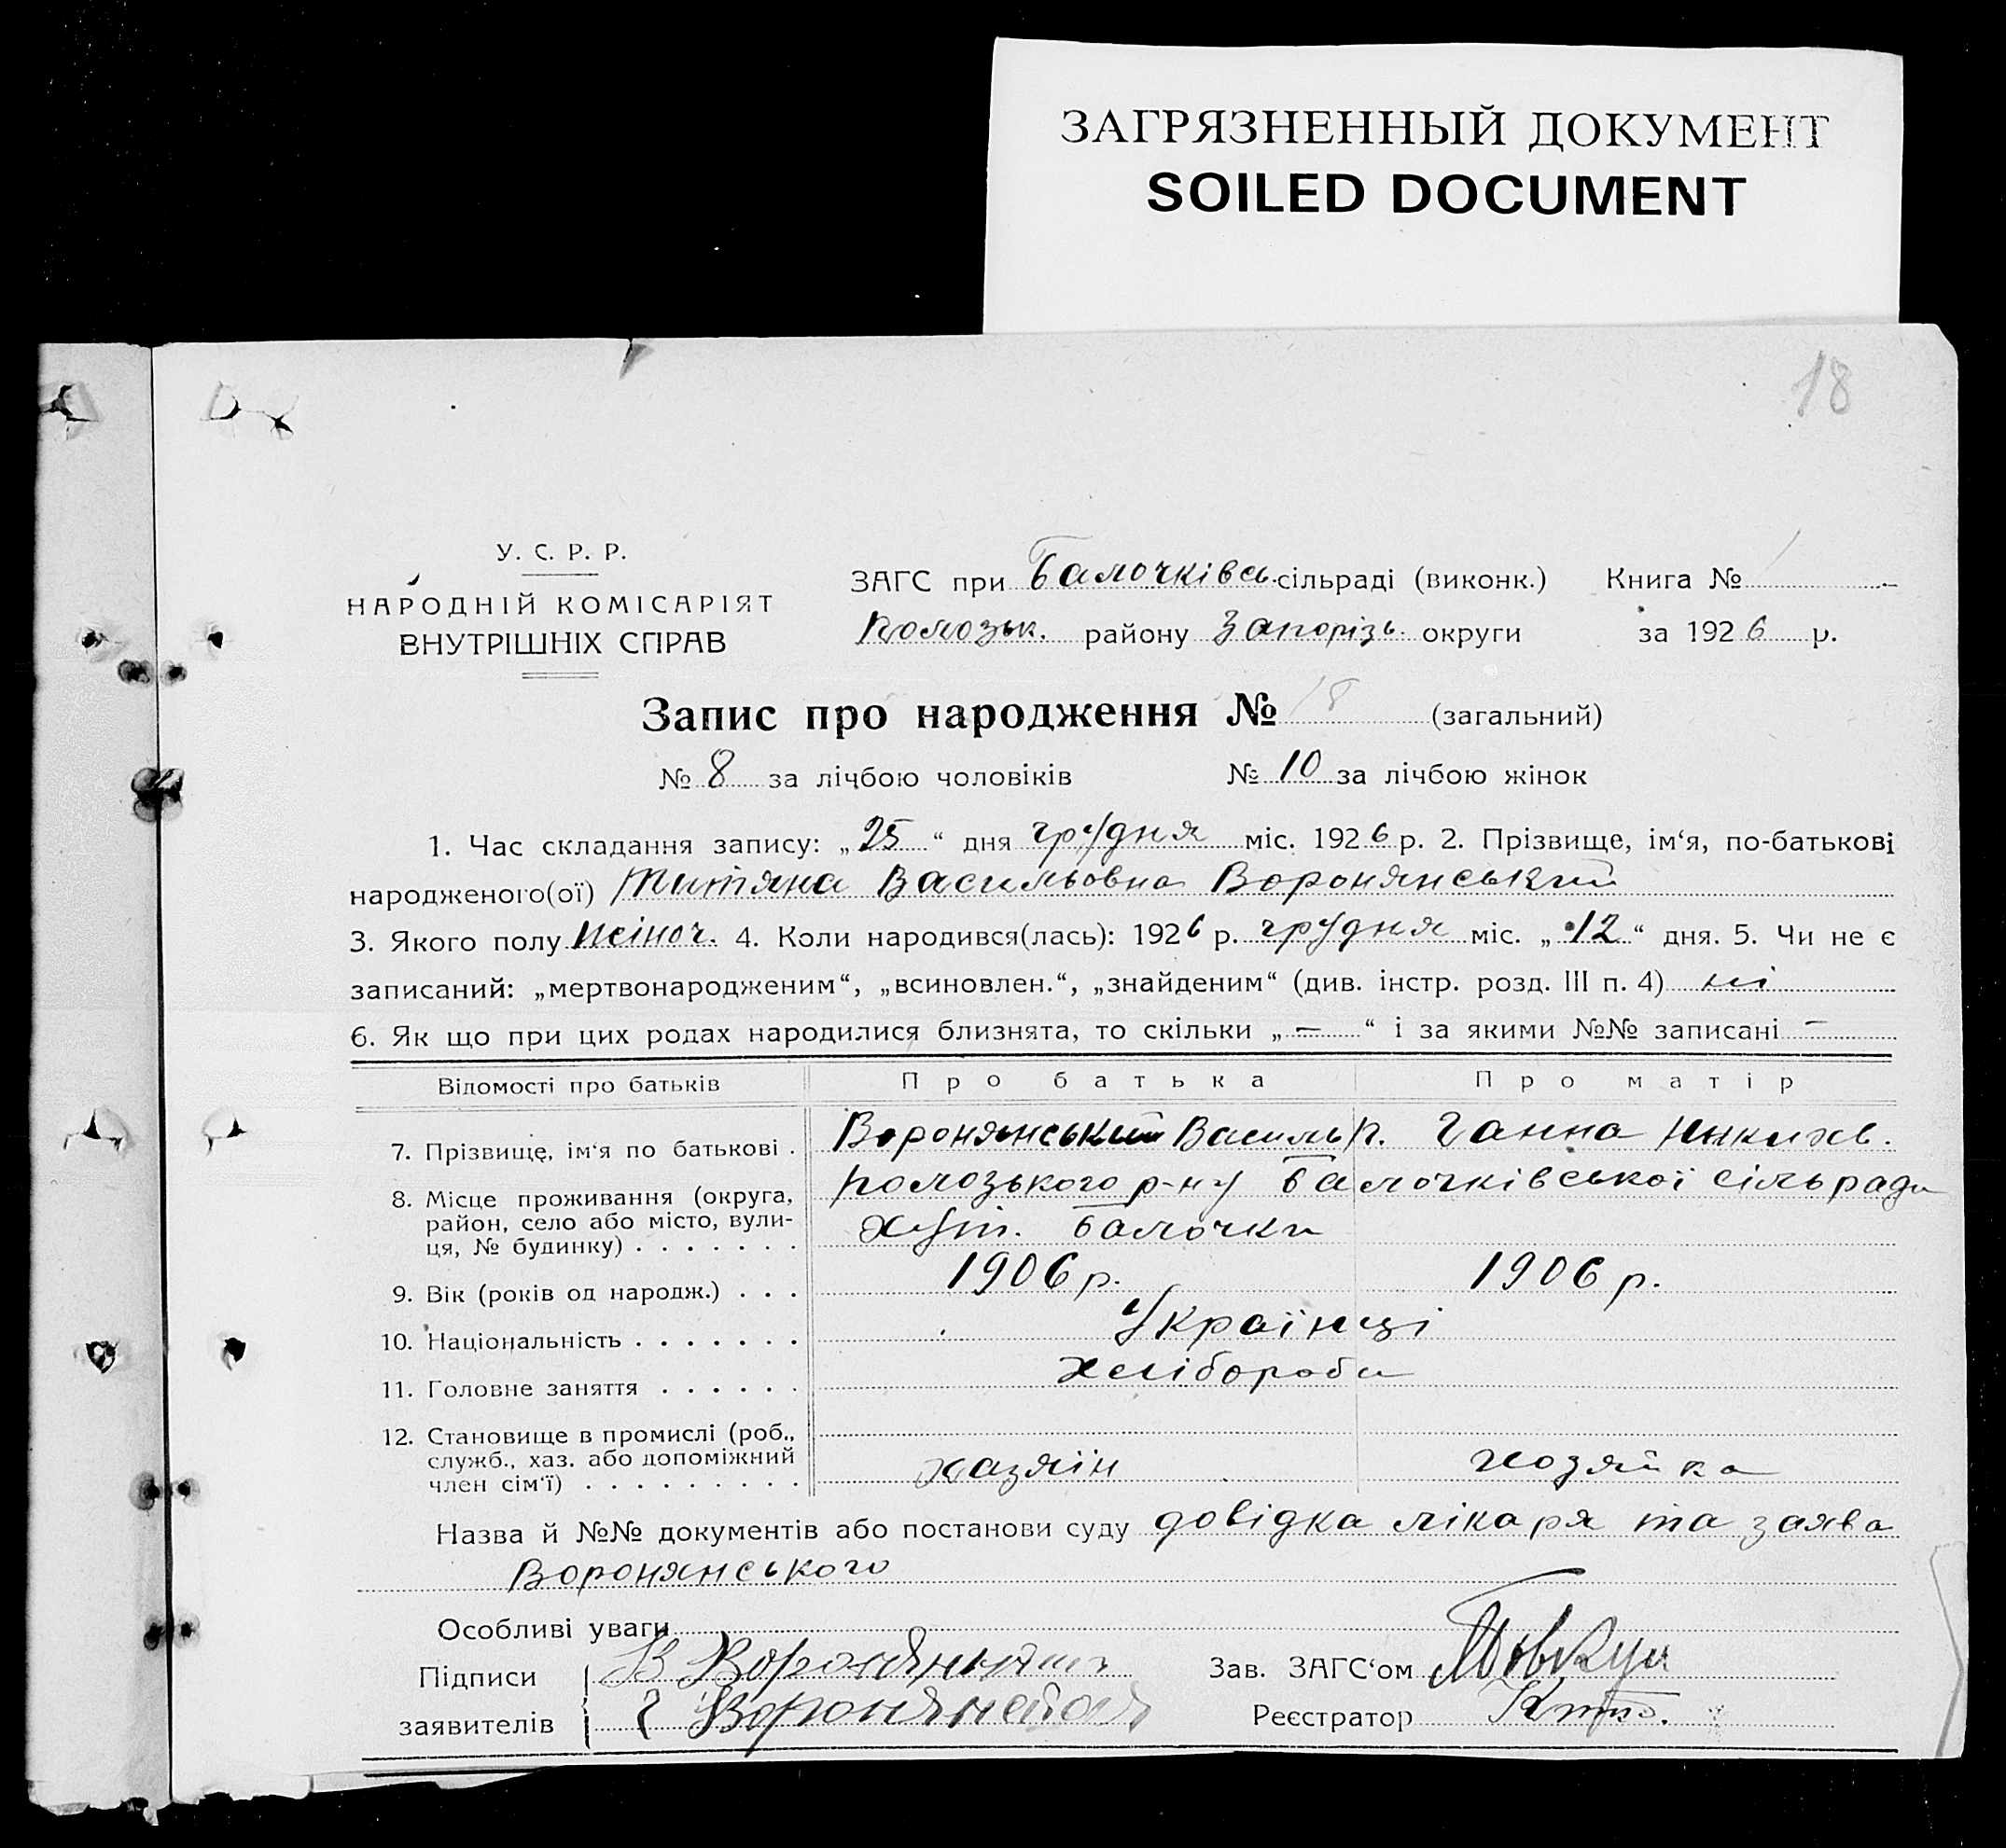 ЗАГРЯЗНЕННЫЙ ДОКУМЕНТ
SOILED DOCUMENT
18
У. С. Р. Р.
НАРОДНІЙ КОМІСАРІЯТ
ВНУТРІШНІХ СПРАВ
ЗАГС при Балочківсь. сільраді (виконк.) Книга № 1
Пологзьк. району Запорізь. округи за 1926 р.
Запис про народження № 18 (загальний)
№ 8 за лічбою чоловіків № 10 за лічбою жінок
1. Час складання запису: „25“ дня грудня міс. 1926 р. 2. Прізвище, ім‘я, по-батькові
народженого(ої) Титяна Васильовна Воронянський
3. Якого полу жіноч. 4. Коли народився(лась): 1926 р. грудня міс. „12“ дня. 5. Чи не є
записаний: „мертвонародженим“, „всиновлен.“, „знайденим“ (див. інстр. розд. III п. 4) ні
6. Як що при цих родах народилися близнята, то скільки „—“ і за якими №№ записані —
Відомості про батьків Про батька Про матір
7. Прізвище, ім‘я по батькові . Воронянський Василь П. Ганна
8. Місце проживання (округа, полозького р-ну Балочківської сільради
район, село або місто, вули-
ця, № будинку) . . . . . . . хут. Балочки
9. Вік (років од народж.) . . . 1906 р. 1906 р.
10. Національність . . . . . . . Українці
11. Головне заняття . . . . . . хлібороби
12. Становище в промислі (роб.,
служб., хаз. або допоміжний
член сім‘ї) . . . . . . . . . хазяїн хозяйка
Назва й №№ документів або постанови суду довідка лікаря та заява
Воронянського
Особливі уваги
Підписи В Зав. ЗАГС‘ом
заявителів Г Реєстратор